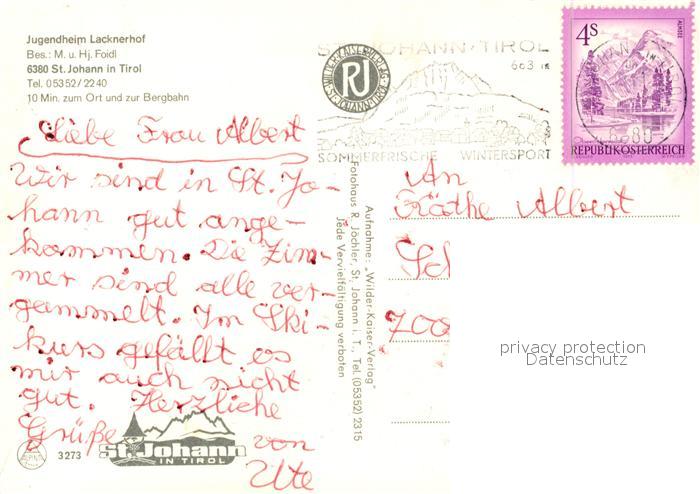 Jugendheim Lacknerhof
Bes.: M. u. Hj. Foidl
6380 St. Johann in Tirol
Tel. 05352/2240
10 Min. zum Ort und zur Bergbahn
Liebe Frau Albert
Wir sind in St. Jo-
hann gut ange-
kommen. Die Zim-
mer sind alle ver-
gammelt. Im Ski-
kurs gefällt es
mir auch nicht
gut. Herzliche
Grüße von
Ute
3273
St. Johann
IN TIROL
Aufnahme: „Wilder-Kaiser-Verlag"
Fotohaus R. Jöchler, St. Johann i. T., Tel. (05352) 2315
Jede Vervielfältigung verboten
ST. JOHANN · TIROL
RJ
SOMMERFRISCHE WINTERSPORT
4S
ALMSEE
6380
REPUBLIK ÖSTERREICH
An
Käthe Albert
Sch
700
privacy protection
Datenschutz